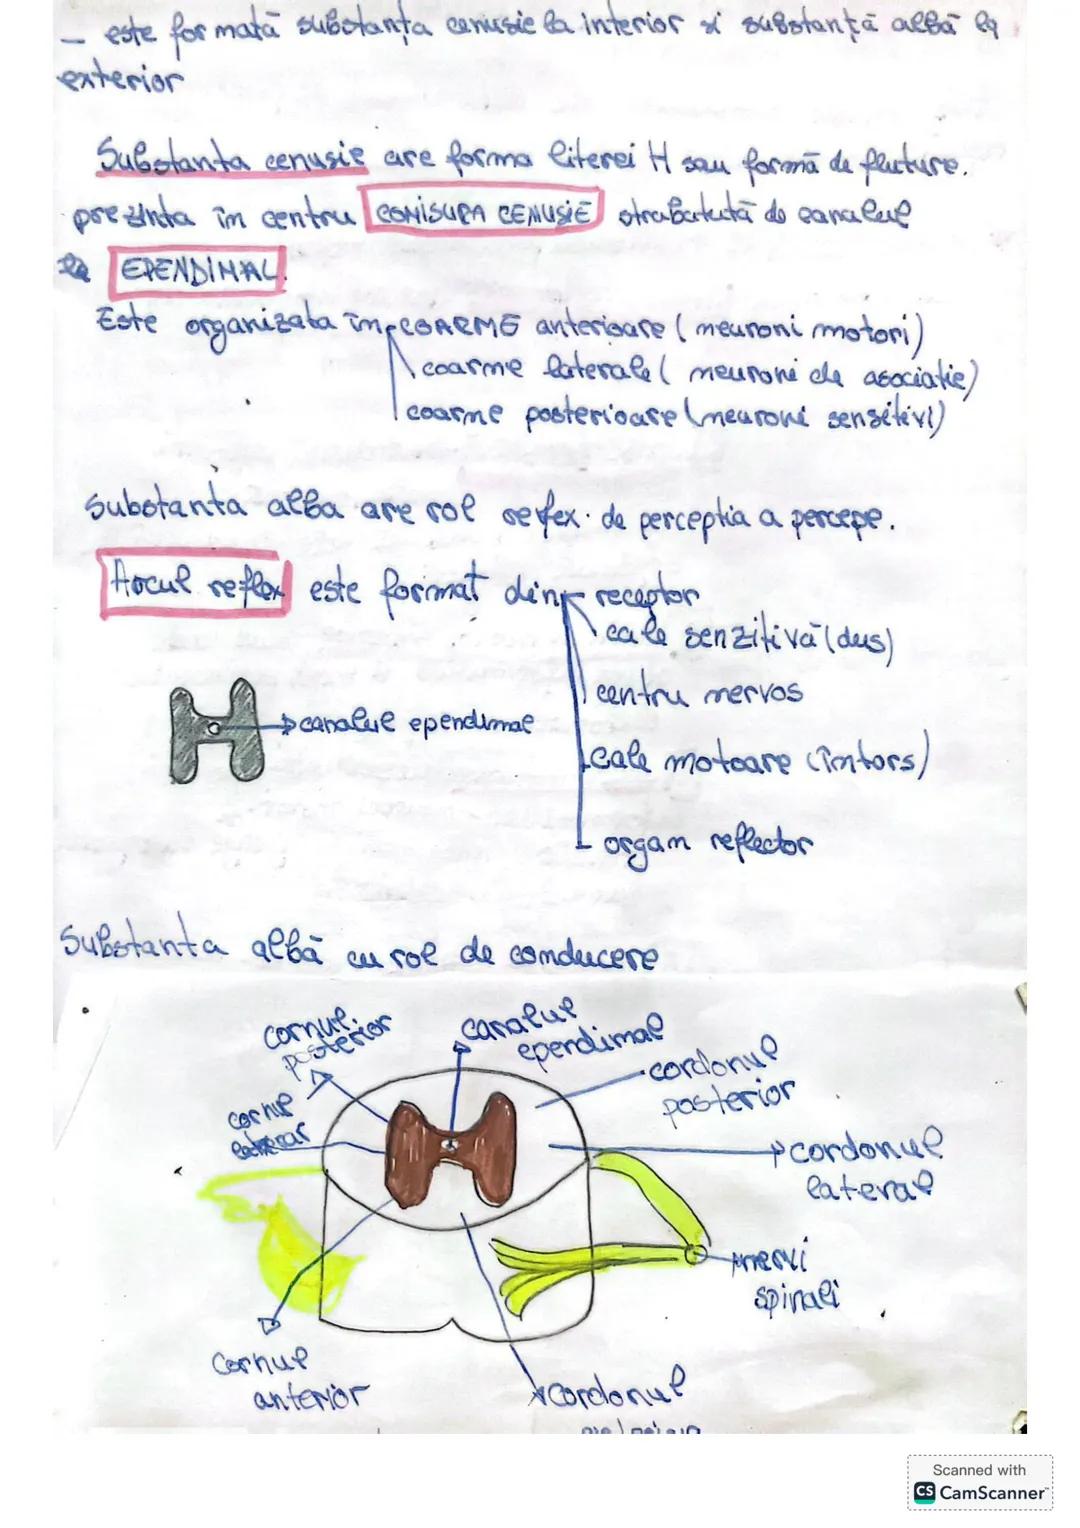 - este formată substanța cenusie la interior si substanță albă la
exterior
Substanta cenusie are forma literei H sau formă de fluture.
prezinta în centru COMISURA CENUSIE strabatută de canalul
EPENDIMAL.
Este organizata în COARME anterioare (neuroni motori)
coarme laterale (neuroni de asociatie)
coarme posterioare (neuroni senzitivi)
Substanta alba are rol reflex de perceptia a percepe.
Arcul reflex este format din receptor
cale senzitivă (dus)
centru nervos
canalul ependimal
cale motoare (întors)
organ reflector
Substanta albă cu rol de conducere
cornul posterior
canalul ependimal
cordonul posterior
cornul laterar
cordonul lateral
nervi spinali
Cornul anterior
cordonul
Scanned with
CS CamScanner